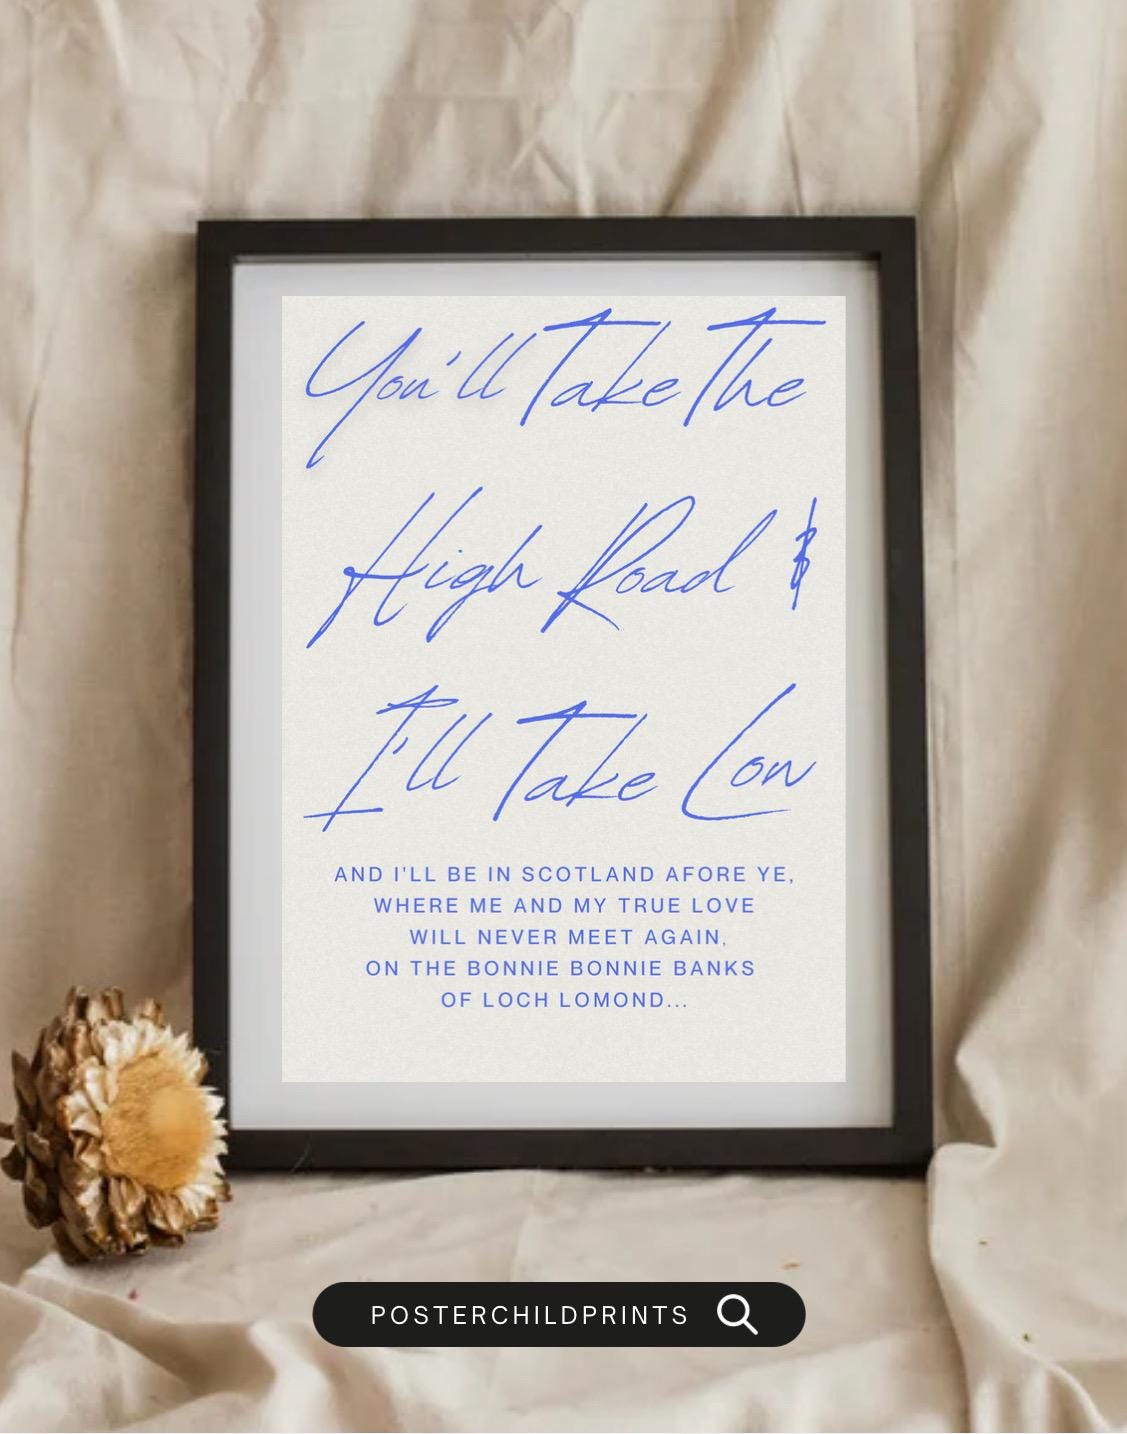 You'll Take The
High Road &
I'll Take Low
AND I'LL BE IN SCOTLAND AFORE YE,
WHERE ME AND MY TRUE LOVE
WILL NEVER MEET AGAIN,
ON THE BONNIE BONNIE BANKS
OF LOCH LOMOND...
POSTERCHILDPRINTS